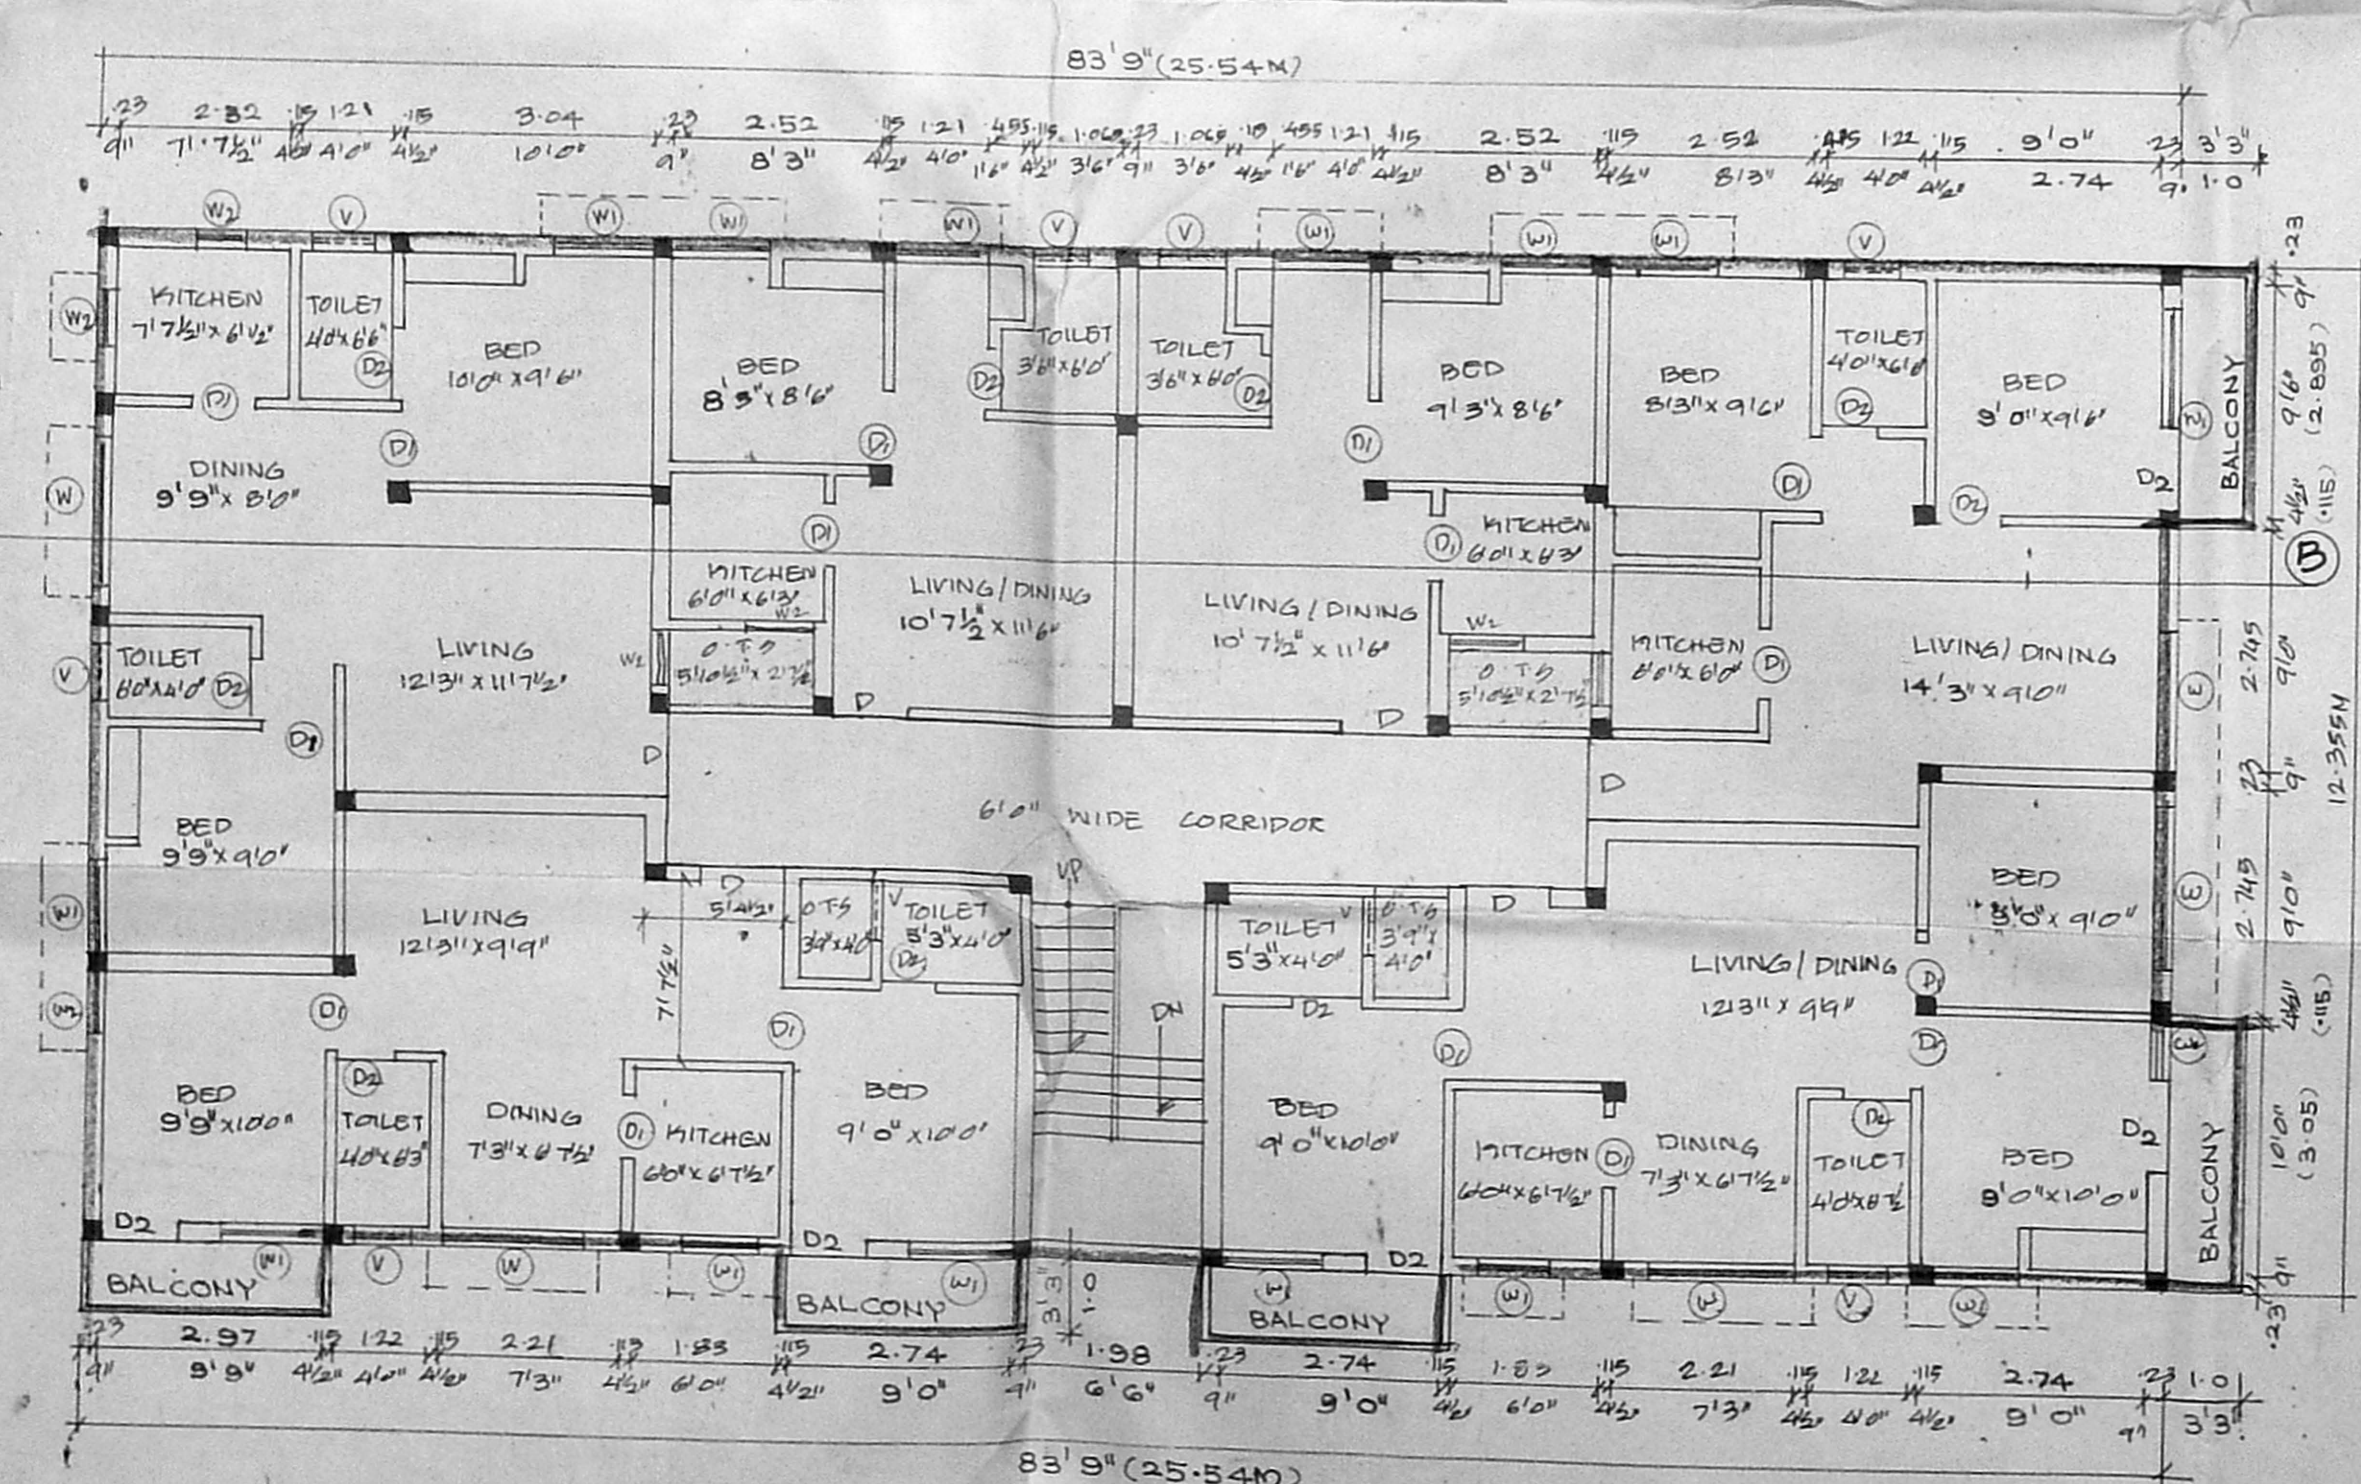 83'9"(25.54M)
.23 2.32 .115 1.21 .115 3.04 .23 2.52 .115 1.21 .455 .115 1.065 .23 1.065 .115 .455 1.21 .115 2.52 .115 2.52 .115 1.22 .115 9'0" .23 3'3"
9" 7'.7½" 4½" 4'0" 4½" 10'0" 9" 8'3" 4½" 4'0" 1'6" 4½" 3'6" 9" 3'6" 4½" 1'6" 4'0" 4½" 8'3" 4½" 8'3" 4½" 4'0" 4½" 2.74 9" 1.0
W2 V W1 W1 W1 V V W1 W1 W1 V
KITCHEN
7'7½"x6'1½"
W2
TOILET
4'0"x6'6"
D2
BED
10'0"x9'6"
BED
8'3"x8'6"
TOILET
3'6"x6'0"
D2
TOILET
3'6"x6'0"
D2
BED
9'3"x8'6"
BED
8'3"x9'6"
TOILET
4'0"x6'0"
D2
BED
9'0"x9'6"
BALCONY
D1
D1
D1
D1
D1
D2
D2
W
DINING
9'9"x8'0"
D1
KITCHEN
6'0"x6'3"
W2
D1
KITCHEN
6'0"x6'3"
LIVING/DINING
10'7½"x11'6"
LIVING/DINING
10'7½"x11'6"
W2
V
TOILET
6'0"x4'0"
D2
LIVING
12'3"x11'7½"
W2
O.T.S
5'10½"x2'7½"
D
D
O.T.S
5'10½"x2'7½"
KITCHEN
6'0"x6'0"
D1
LIVING/DINING
14'3"x9'0"
D1
D
D
6'0" WIDE CORRIDOR
BED
9'9"x9'0"
W1
LIVING
12'3"x9'9"
D
5'4½"
7'7½"
O.T.S
3'9"x4'0"
V
TOILET
5'3"x4'0"
D2
UP
DN
TOILET
5'3"x4'0"
V
O.T.S
3'9"x
4'0"
D
D2
LIVING/DINING
12'3"x9'9"
BED
9'0"x9'0"
D1
W2
D1
D1
D1
D1
BED
9'9"x10'0"
D2
TOILET
4'0"x6'3"
DINING
7'3"x6'7½"
D1
KITCHEN
6'0"x6'7½"
BED
9'0"x10'0"
BED
9'0"x10'0"
KITCHEN
6'0"x6'7½"
D1
DINING
7'3"x6'7½"
D2
TOILET
BED
9'0"x10'0"
D2
BALCONY
D2
D2
D2
BALCONY
W1
V
W
W1
BALCONY
W1
3'3"
1.0
W1
BALCONY
W1
W
V
W1
.23 2.97 .115 1.22 .115 2.21 .115 1.83 .115 2.74 .23 1.98 .23 2.74 .115 1.83 .115 2.21 .115 1.22 .115 2.74 .23 1.0
9" 9'9" 4½" 4'0" 4½" 7'3" 4½" 6'0" 4½" 9'0" 9" 6'6" 9" 9'0" 4½" 6'0" 4½" 7'3" 4½" 4'0" 4½" 9'0" 9" 3'3"
83'9"(25.54M)
.23
9"
9'6"
(2.895)
4½"
(.115)
B
2.745
9'0"
.23
9"
2.745
9'0"
12.355M
4½"
(.115)
10'0"
(3.05)
9"
.23